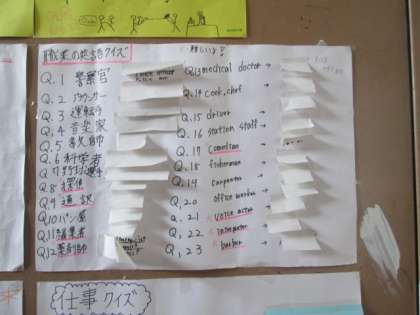 職業の英語クイズ
難しいよ!
Q.1 警察官
Q.2
Q.3 運転手
Q.4 音楽家
Q.5 美容師
Q.6 科学者
Q.7 野球選手
Q.8 探偵
Q.9 通訳
Q.10 パン屋
Q.11
Q.12 薬剤師
Q.13 medical doctor →
Q.14 cook, chef →
Q.15 driver →
Q.16 station staff →
Q.17 Comedian →
Q.18 fisherman →
Q.19 carpenter →
Q.20 office worker →
Q.21 voice actor →
Q.22 →
Q.23 barber →
仕事クイズ